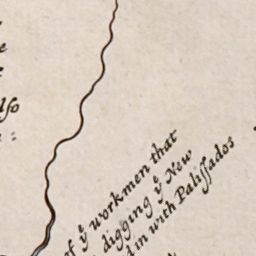 lſo
of yͤ workmen that
digging yͤ New
in with Paliſſados